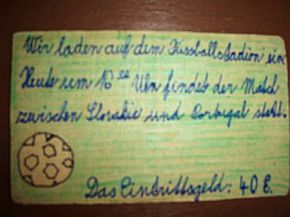 Wir laden auf dem Fussballstadion ein
Heute um Uhr findet der Match
zwischen Slovakie und Portugal statt.
Das Eintrittsgeld: 40 E.